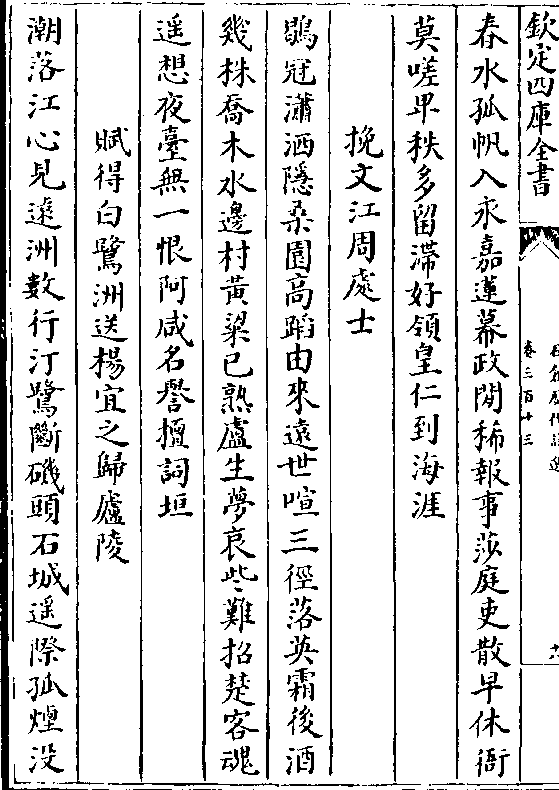 欽定四庫全書
卷三百十三
春水孤帆入永嘉蓮幕政閒稀報事莎庭吏散早休衙
莫嗟卑秩多留滯好領皇仁到海涯
挽文江周處士
鶡冠瀟洒隱桑園高蹈由來遠世喧三徑落英霜後酒
幾株喬木水邊村黃粱已熟盧生夢哀些難招楚客魂
遥想夜臺無一恨阿咸名譽擅詞垣
賦得白鷺洲送楊宜之歸廬陵
潮落江心見遠洲數行汀鷺斷磯頭石城遥際孤煙没